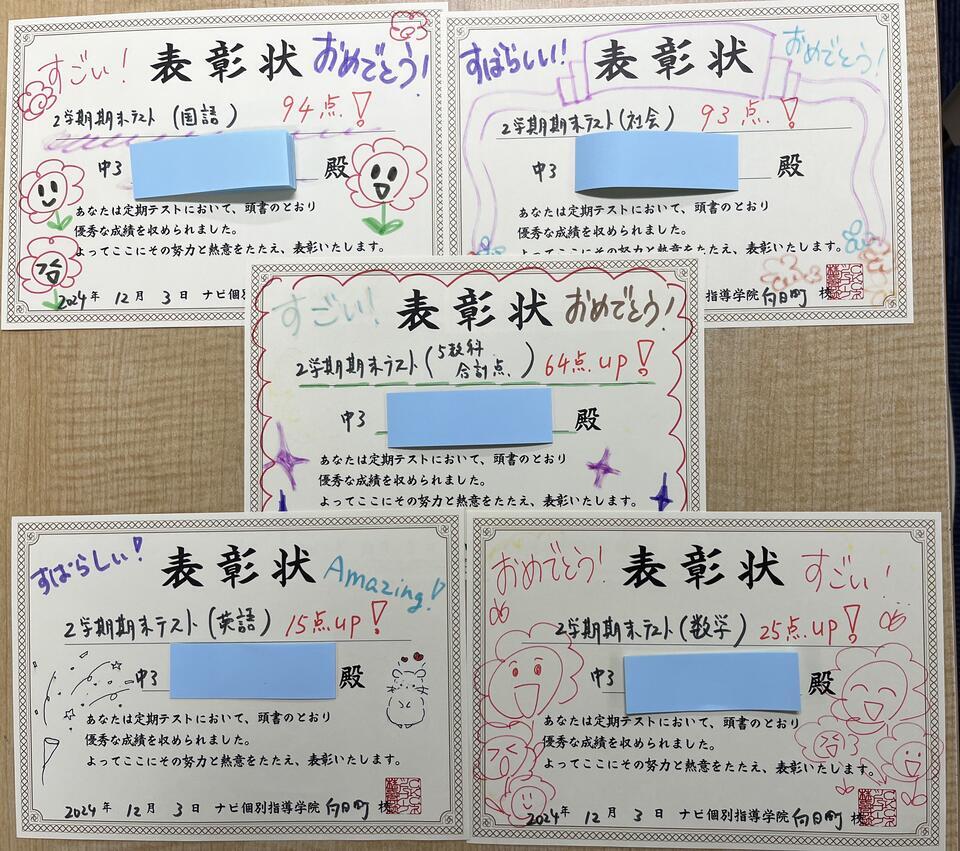 すごい! 表彰状 おめでとう!
2学期期末テスト (国語) 94点!
中3 殿
あなたは定期テストにおいて、頭書のとおり
優秀な成績を収められました。
よってここにその努力と熱意をたたえ、表彰いたします。
2024年 12月 3日 ナビ個別
すばらしい! 表彰状 おめでとう!
2学期期末テスト(社会) 93点!
中3 殿
あなたは定期テストにおいて、頭書のとおり
優秀な成績を収められました。
よってここにその努力と熱意をたたえ、表彰いたします。
指導学院 向日町 校
すごい! 表彰状 おめでとう!
2学期期末テスト(5教科合計点) 64点up!
中3 殿
あなたは定期テストにおいて、頭書のとおり
優秀な成績を収められました。
よってここにその努力と熱意をたたえ、表彰いたします。
すばらしい! 表彰状 Amazing!
2学期期末テスト(英語) 15点up!
中3 殿
あなたは定期テストにおいて、頭書のとおり
優秀な成績を収められました。
よってここにその努力と熱意をたたえ、表彰いたします。
2024年 12月 3日 ナビ個別指導学院 向日町 校
おめでとう! 表彰状 すごい!
2学期期末テスト(数学) 25点up!
中3 殿
あなたは定期テストにおいて、頭書のとおり
優秀な成績を収められました。
よってここにその努力と熱意をたたえ、表彰いたします。
2024年 12月 3日 ナビ個別指導学院 向日町 校